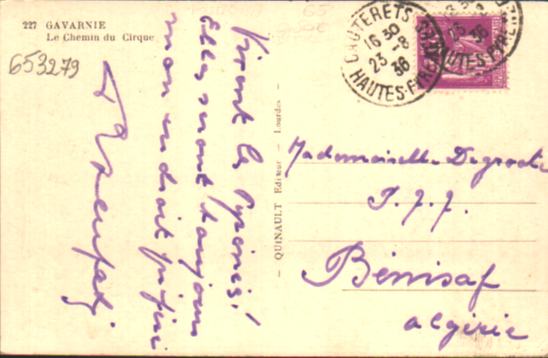 227 GAVARNIE
Le Chemin du Cirque
653279
Vivent les Pyrénées!
Elles seront toujours
mon endroit préféré
QUINAULT Editeur - Lourdes
CAUTERETS
16 30
23 -8
36
HAUTES-PYRÉNÉES
Mademoiselle
P.J.J.
Bénisaf
Algérie